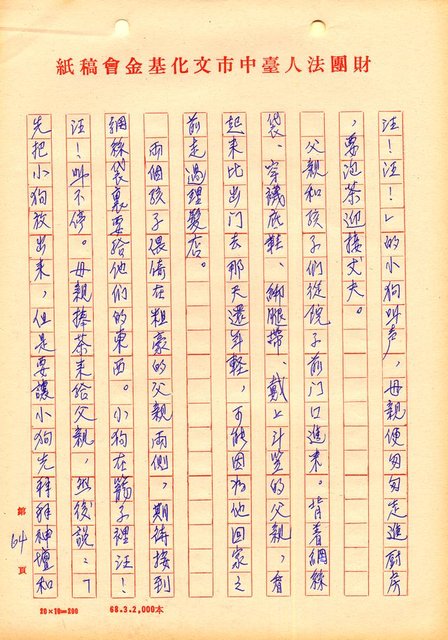 財團法人臺中市文化基金會稿紙
汪！汪！」的小狗叫声，母親便匆匆走進厨房
，要泡茶迎接丈夫。
父親和孩子们從倪子前门口進來。背着網絲
袋、穿襪底鞋、綁腿帶、戴上斗笠的父親，看
起来比出门去那天還年軽，可能因為他回家之
前走過理髮店。
兩個孩子偎倚在粗豪的父親兩側，期待接到
網絲袋裏要給他們的東西。小狗在籠子裡汪！
汪！叫不停。母親捧茶来給父親，然後說：「
先把小狗放出来，但是要讓小狗先拜拜神壇和
第64頁
20×10=200
68.3.2,000本